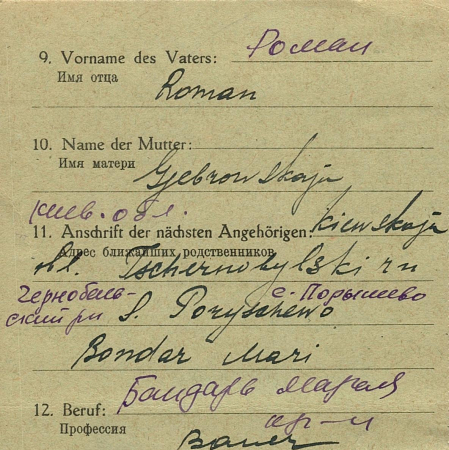 9. Vorname des Vaters: Роман
Имя отца
Roman
10. Name der Mutter:
Имя матери
Gjebrowskaja
киев. обл.
11. Anschrift der nächsten Angehörigen: Kiewskaja
Адрес ближайших родственников
obl. Tschernobylski rn
Чернобель- с. Порышево
ский рн S. Poryschewo
Bondar Mari
Бандарь Мария
12. Beruf: кр-н
Профессия
Bauer